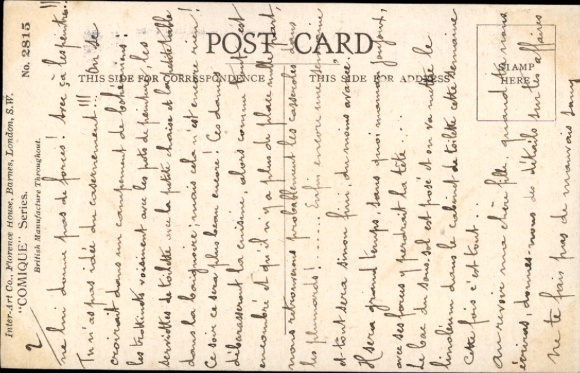 POST CARD
THIS SIDE FOR CORRESPONDENCE
THIS SIDE FOR ADDRESS
STAMP
HERE
Inter-Art Co., Florence House, Barnes, London, S.W.
"COMIQUE" Series. No. 2815
British Manufacture Throughout.
2
ne lui donne pas de forces! Avec ça les peintres!!
Tu n'as pas idée du casernement!!! On se
croirait dans un campement de bohémiens:
les brokinots voisinent avec les pots de peinture, les
serviettes de toilette avec la petite chaise et la petite table
dans la baignoire; mais cela n'est encore rien!
Ce soir ce sera plus beau encore! Ces dames
débarrasseront la cuisine, alors comme tout est
encombré et qu'il n'y a plus de place nulle part,
nous retrouverons probablement les casseroles sous
les plumards! .... Enfin encore une semaine
et tout sera sinon fini, du moins avancé.
Il sera grand temps, sans quoi maman Joujou,
avec ses forces y perdrait la tête ....
Le bac du sous-sol est posé et on va mettre le
linoléum dans le cabinet de toilette cette semaine
Cette fois c'est tout ...
Au revoir ma chère fille, quand tu nous
écriras, donnes-nous des détails sur tes affaires
ne te fais pas de mauvais sang